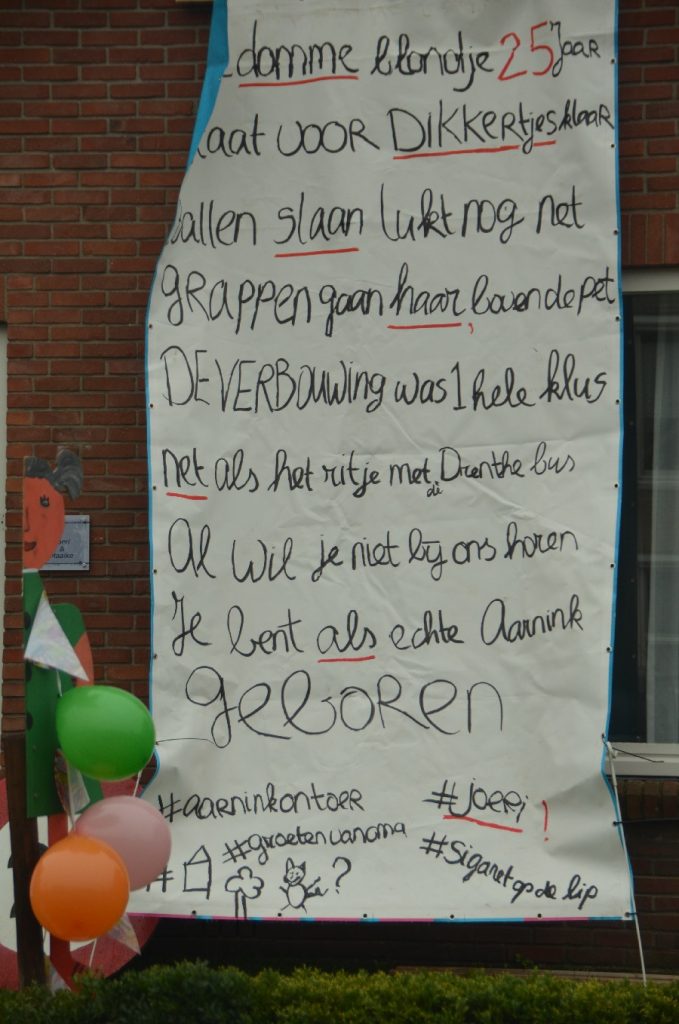 domme blondje 25 Jaar
voor DIKKERtjes klaar
slaan lukt nog net
GRAPPEN gaan haar, boven de pet
DE VERBOUWING was 1 hele klus
net als het ritje met di Drenthe bus
Al wil je niet bij ons horen
Je bent als echte Aarnink
geboren
#aarninkontoer
#joeri!
#groetenvanoma
#sigaret op de lip
# ?